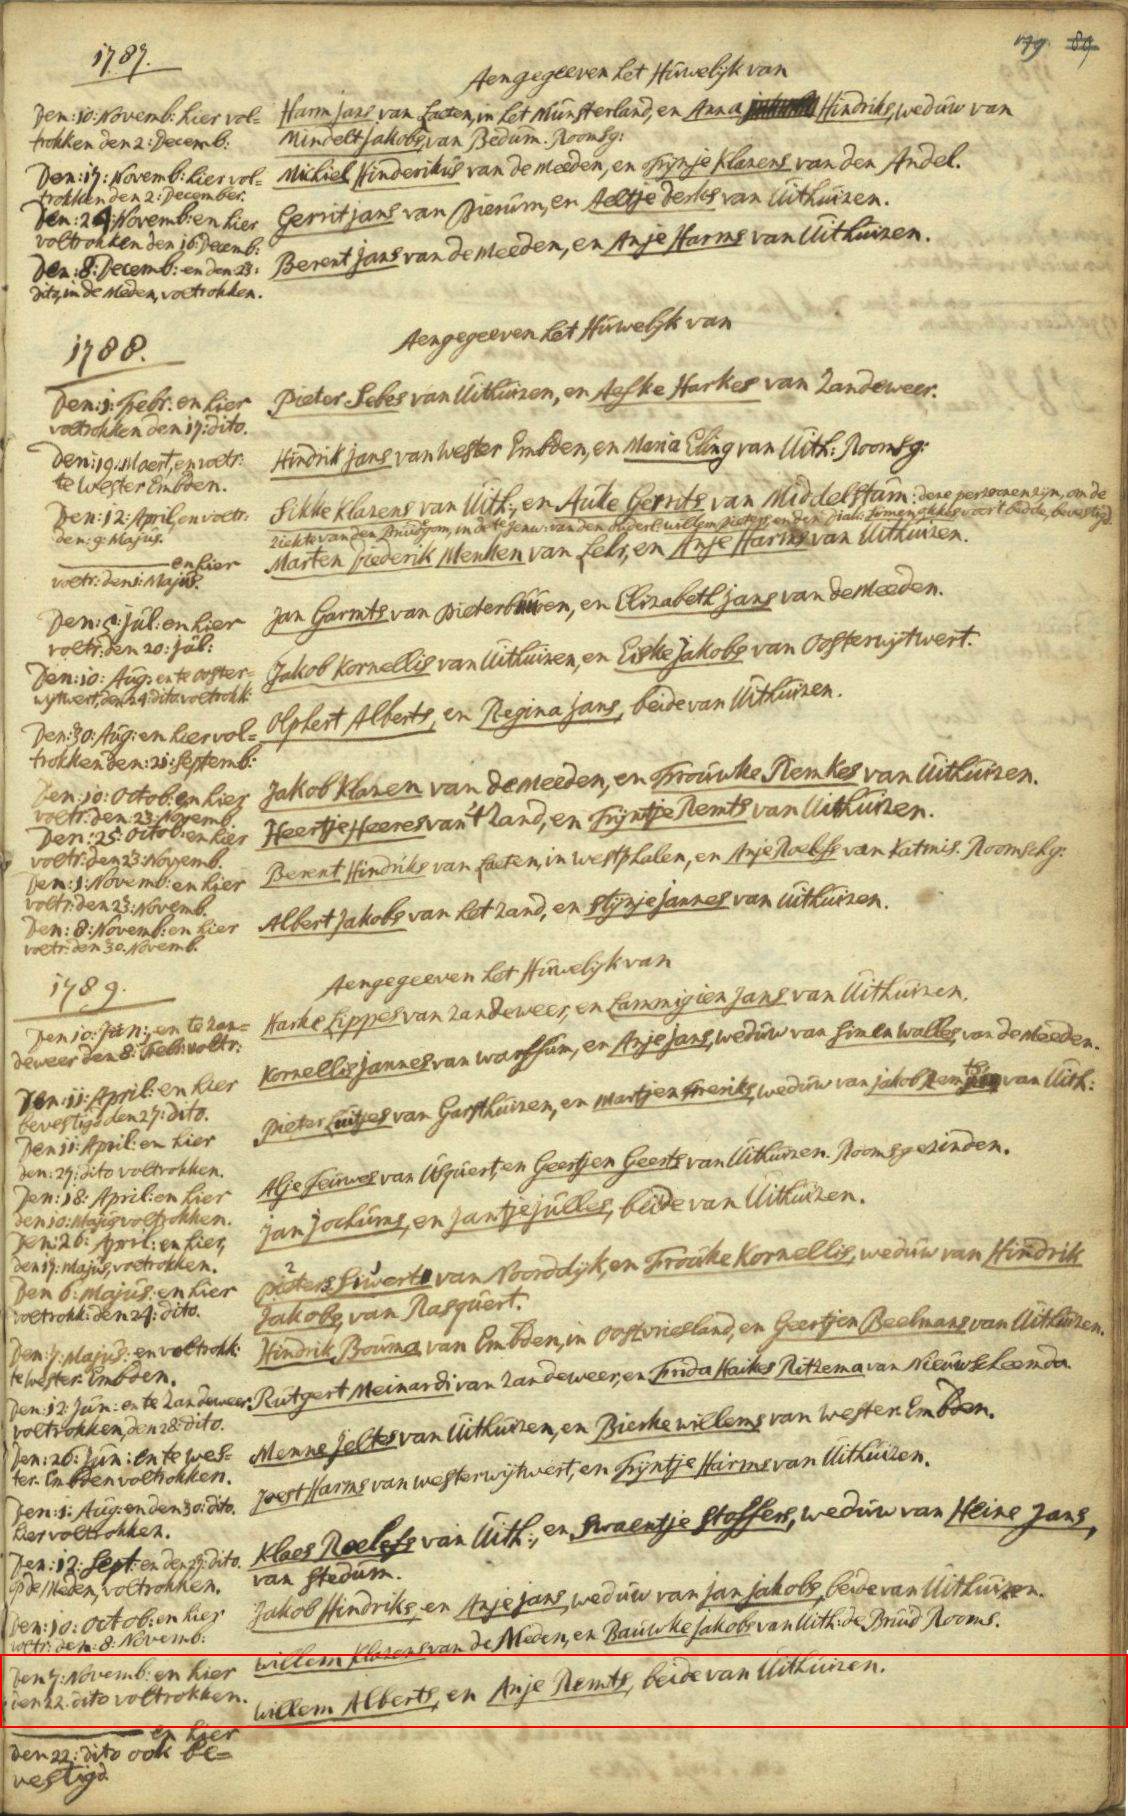 179. 89
1787.
Aengegeeven het Hüwelijk van
Den: 10: Novemb: hier vol=
trokken den 2: Decemb:
Harm jans van Laeten, in het Münsterland, en Anna Hindriks, wedüw van
Mindelt Jakobs, van Bedüm. Roomsg:
Den: 17: Novemb: hier vol=
trokken den 2: December.
Michiel Hinderikűs van de Meeden, en Trijnje Klasens van den Andel.
Den: 24 Novemb: en hier
voltrokken den 16: Decemb:
Gerrit jans van Pierüm, en Aeltje derks van Üithüizen.
Den: 8: Decemb: en den 23:
dito, in de Meden, voltrokken.
Berent Jans van de Meeden, en Anje Harms van Üithüizen.
1788.
Aengegeeven het Hüwelijk van
Den: 1: Febr: en hier
voltrokken den 17: dito.
Pieter Sebes van Üithüizen, en Aefke Harkes van Zandeweer.
Den: 19: Maert, en voltr:
te Wester Embden.
Hindrik Jans van Wester Embden, en Maria Eling van Üith: Roomsg:
Den: 12: April, en voltr:
den: 9: Majüs.
Sikke Klasens van Üith:, en Auke Gerrits van Middelstüm: deze persoonen zijn, om de
ziekte van den Brüidgom, in de tegenw: van den
en hier
voltr: den 1: Majüs.
Marten Diederik Menken van Lehr, en Anje Harms van Üithüizen.
Den: 5: Jül: en hier
voltr: den 20: Jül:
Jan Garmts van Pieterbüiren, en Elizabeth Jans van de Meeden.
Den: 10: Aug: en te Ooster=
wijtwert, den 24 dito voltrokk:
Jakob Kornellis van Üithüizen, en Eiske Jakobs van Oosterwijtwert.
Den: 30: Aüg: en hier vol=
trokken den: 21: Septemb:
Olphert Alberts, en Regina Jans, beide van Üithüizen.
Den: 10: Octob: en hier
voltr: den 23: Novemb.
Jakob Klasen van de Meeden, en Trouwke Remkes van Üithüizen.
Den: 25: Octob: en hier
voltr: den 23: Novemb.
Heertje Heeres van 't Zand, en Trijntje Remts van Üithüizen.
Den: 1: Novemb: en hier
voltr: den 23: Novemb.
Berent Hindriks van Laeten, in Westphalen, en Anje Roelfs van Katmis. Roomschg:
Den: 8: Novemb: en hier
voltr: den 30. Novemb.
Albert Jakobs van het Zand, en Stijnje Jannes van Üithüizen.
1789.
Aengegeeven het Hüwelijk van
Den 10: Jan:, en te Zan=
deweer den 8: Febr: voltr:
Harke Lippes van Zandeweer, en Lammigien Jans van Üithüizen.
Den: 11: April: en hier
bevestigd den 27: dito.
Kornellis Jannes van Warffüm, en Anje Jans, wedüw van Simen Walles, van de Meeden.
Den 11: April: en hier
den: 29: dito voltrokken.
Pieter Luitjes van Garsthüizen, en Martjen Freriks, wedüw van Jakob van Üith:
Den: 18: April: en hier
den 10: Majüs voltrokken.
Alje Feüwes van Üsqüert, en Geertjen Geerts van Üithüizen. Roomsgezinden.
Den: 26: April: en hier,
den 17: Majüs, voltrokken.
Jan Jochüms, en Jantje Jülles, beide van Üithüizen.
Den 6: Majüs: en hier
voltrokk: den 24: dito.
Pieter Siwerts van Noorddijk, en Troüke Kornellis, wedüw van Hindrik
Jakobs, van Rasqüert.
Den: 7: Majüs: en voltrokk:
te Wester. Embden.
Hindrik Boüma, van Embden, in Oostvriesland, en Geertjen Beelmans van Üithüizen.
Den: 12: Jün: en te Zandeweer
voltrokken, den 28: dito.
Rütgert Meinardi van Zandeweer, en Frida Haikes Ritzema van Nieüwscheemda
Den: 26: Jün: en te Wes=
ter. Embden voltrokken.
Menne Jeltes van Üithüizen, en Bieske Willems van Wester Embden.
Den: 1: Aüg: en den 30: dito.
hier voltrokken.
Joest Harms van Westerwijtwert, en Trijntje Harms van Üithüizen.
Den: 12: Sept: en den 27: dito.
op de Meden, voltrokken.
Klaes Roelefs van Üith:, en Swaentje Stoffers, wedüw van Heine Jans,
van Stedüm.
Den: 10: Octob: en hier
voltr: den: 8: Novemb:
Jakob Hindriks, en Anje Jans, wedüw van Jan Jakobs, beide van Üithüizen.
Den 7: Novemb: en hier
den 22. dito voltrokken.
Willem Klasens van de Meden, en Bauwke Jakobs van Üith: de Brüid Rooms.
Willem Alberts, en Anje Remts, beide van Üithüizen.
en hier
den 22: dito ook be=
vestigd